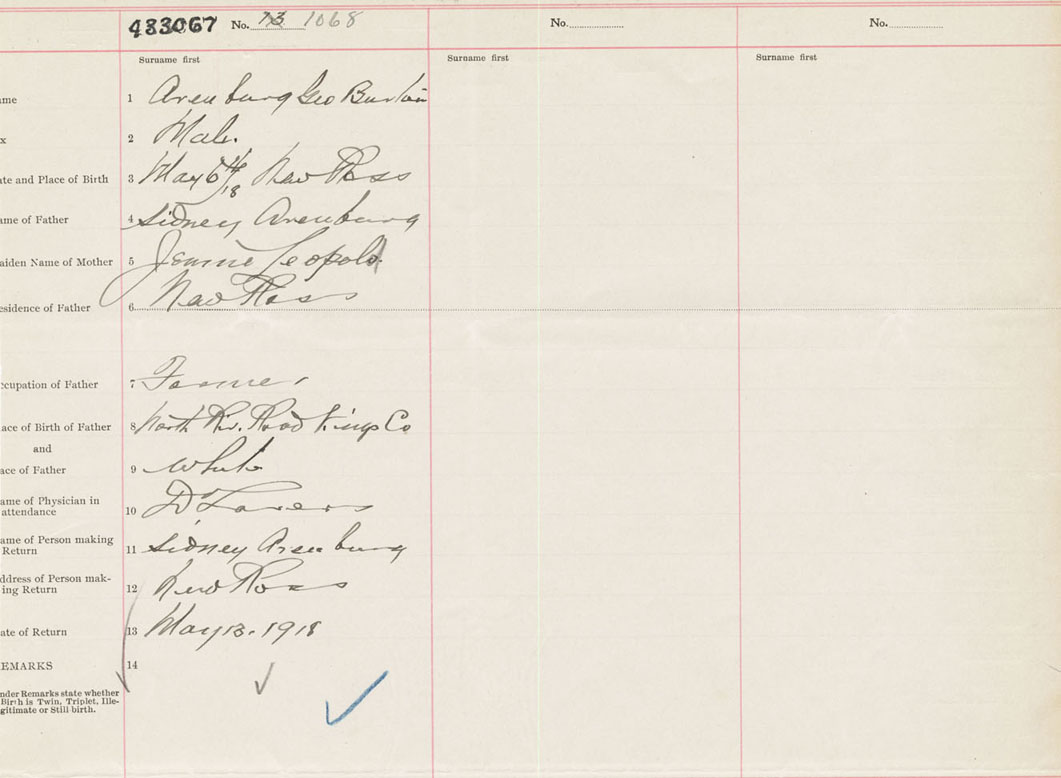 483067 No. 13 1068 No. No.
Surname first Surname first Surname first
ame 1 Arenburg Geo Burton
x 2 Male.
ate and Place of Birth 3 May 6th/18 New Ross
ame of Father 4 Sidney Arenburg
aiden Name of Mother 5 Leopold
esidence of Father 6 New Ross
ccupation of Father 7 Farmer
ace of Birth of Father 8 North Riv. Road Kings Co
and
ace of Father 9 White
ame of Physician in
attendance 10 D
ame of Person making
Return 11 Sidney Arenburg
ddress of Person mak-
ing Return 12 New Ross
ate of Return 13 May 13. 1918
EMARKS 14
nder Remarks state whether
Birth is Twin, Triplet, Ille-
gitimate or Still birth.